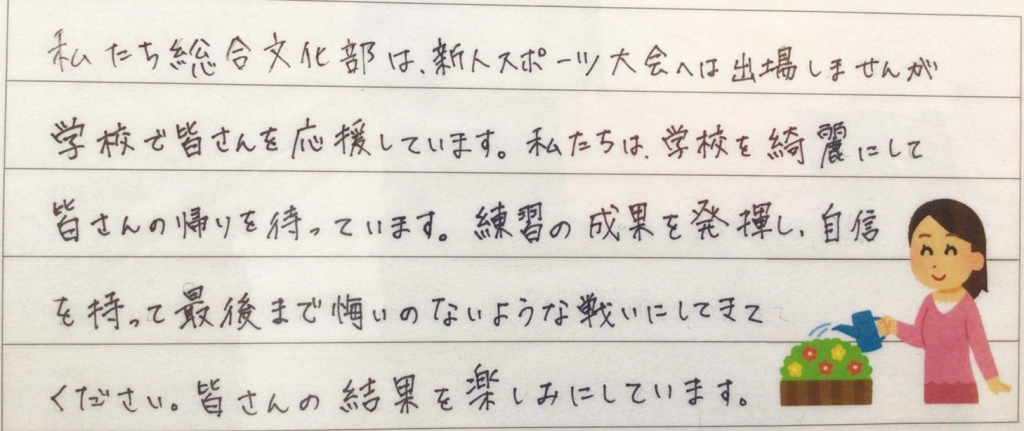 私たち総合文化部は、新人スポーツ大会へは出場しませんが
学校で皆さんを応援しています。私たちは、学校を綺麗にして
皆さんの帰りを待っています。練習の成果を発揮し、自信
を持って最後まで悔いのないような戦いにしてきて
ください。皆さんの結果を楽しみにしています。